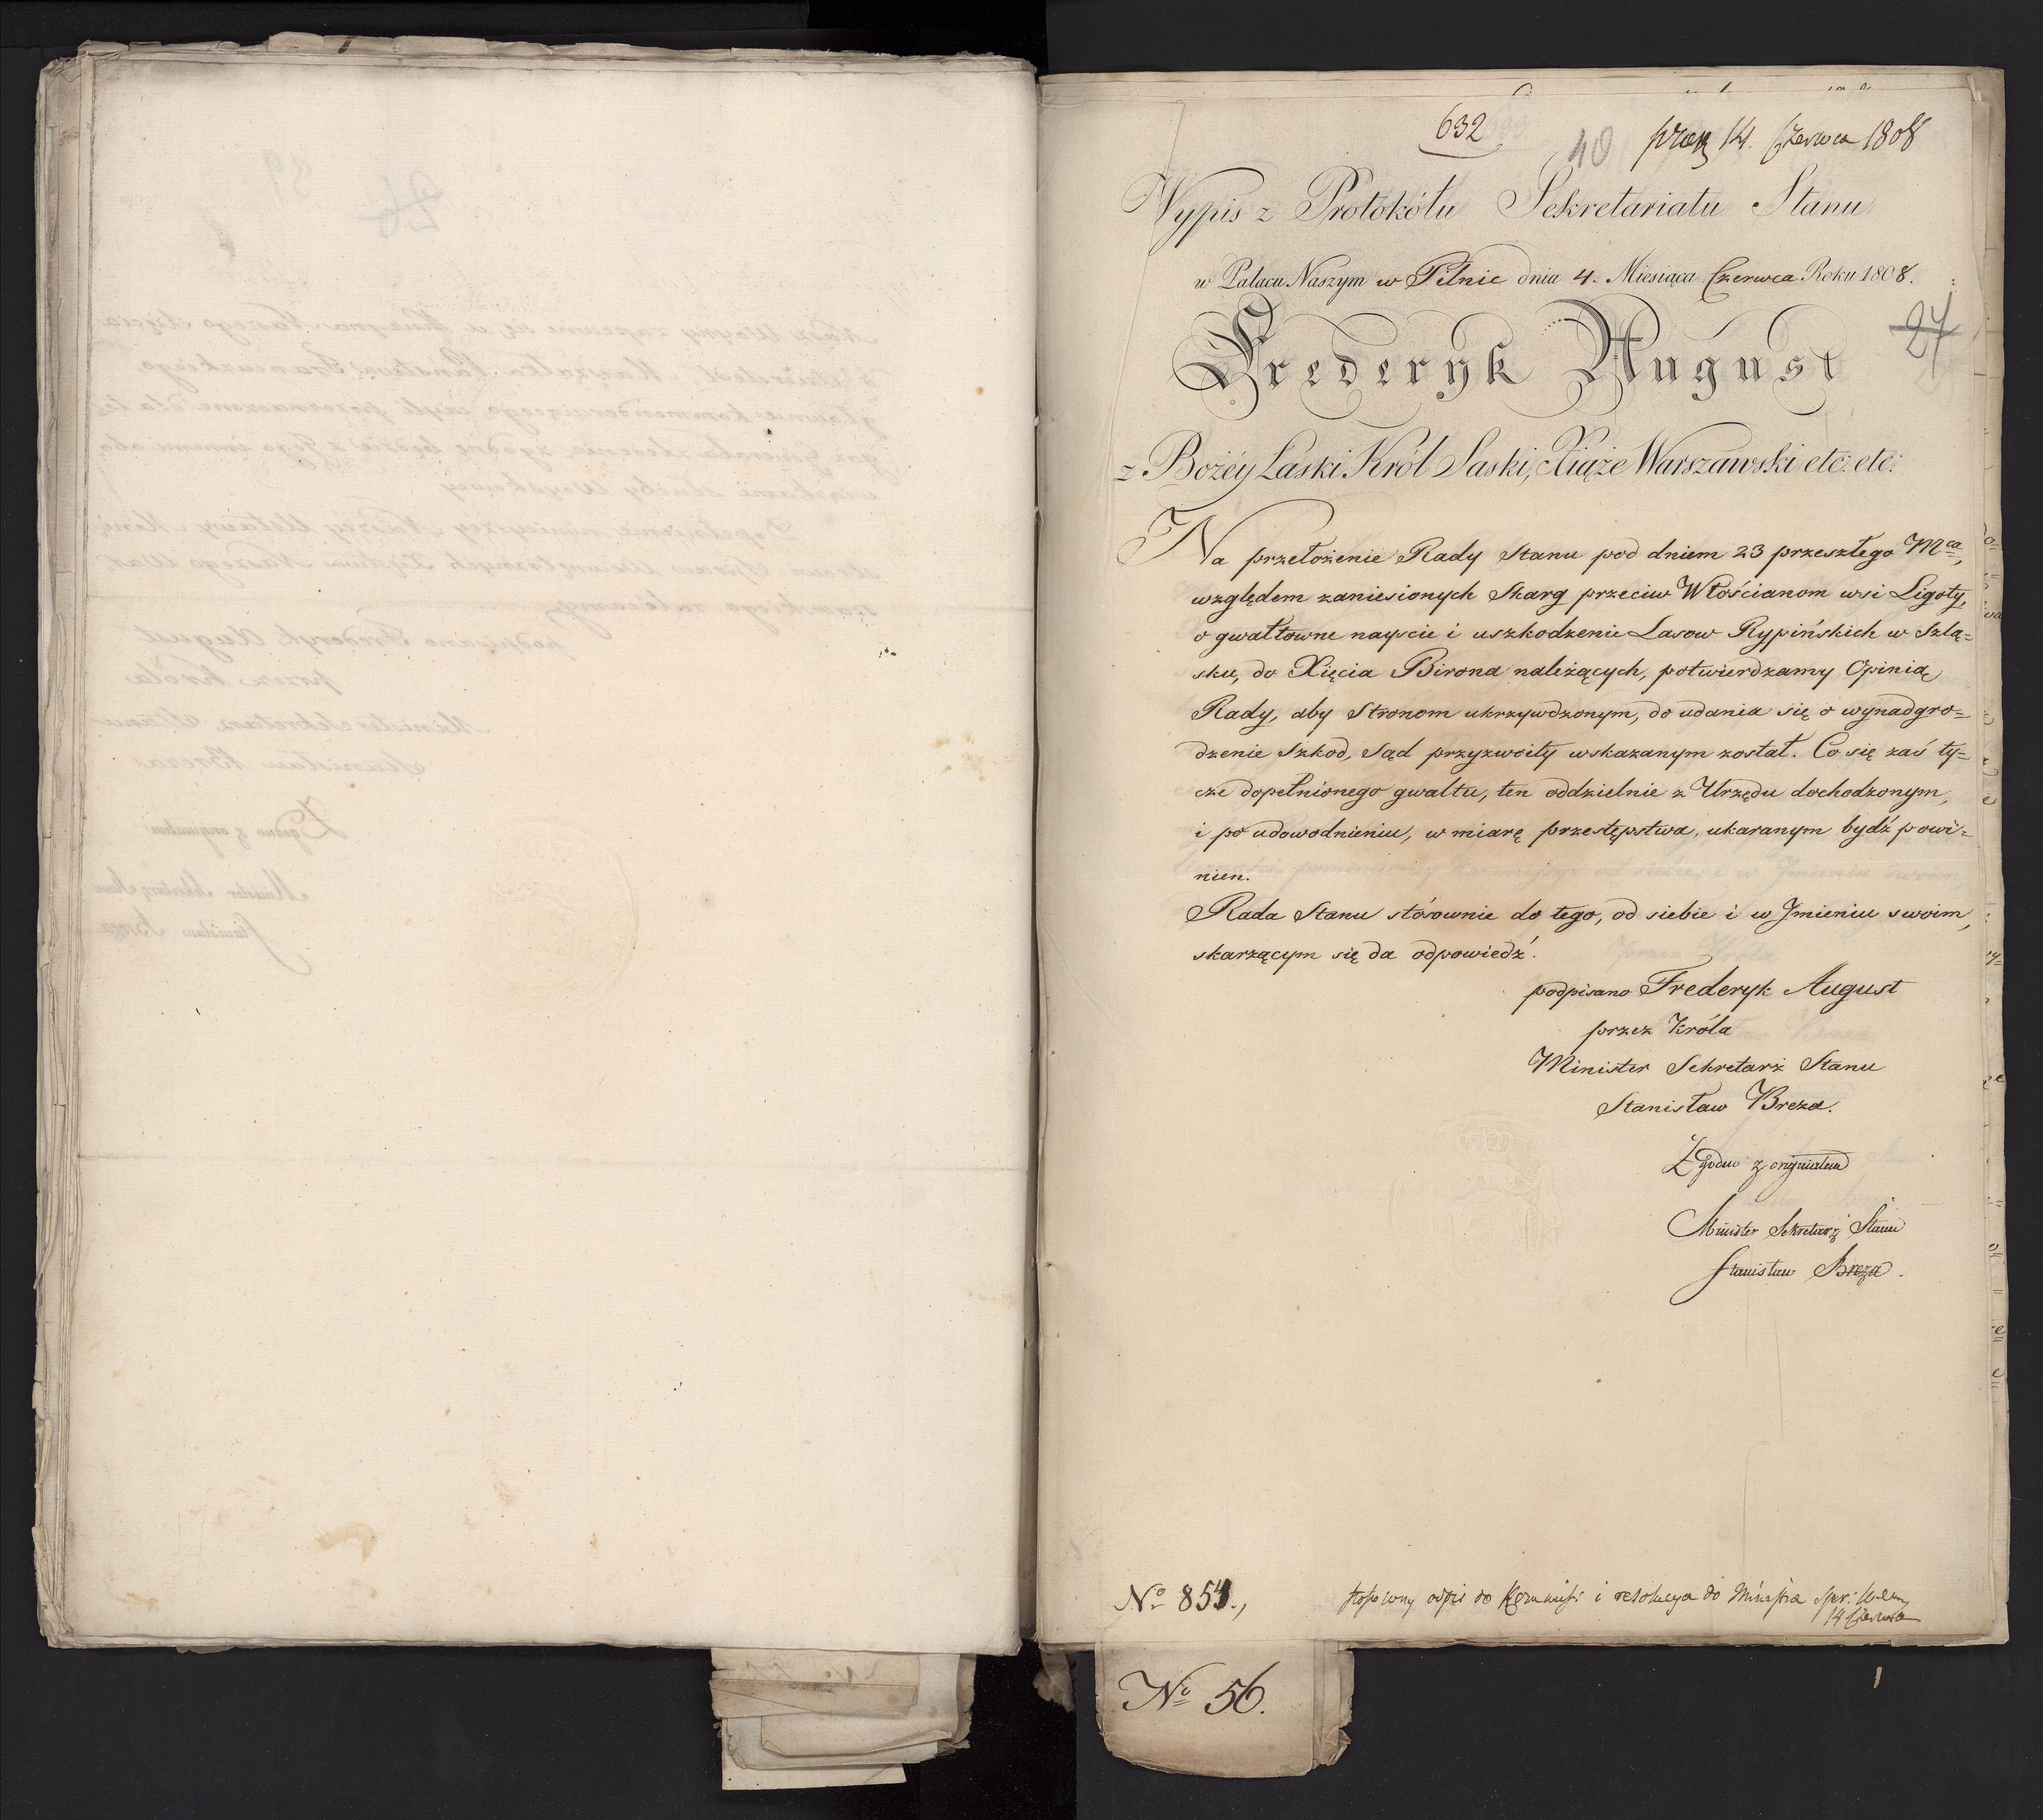 632
40 prez 14. Czerwca 1808
Wypis z Protokółu Sekretariatu Stanu
w Pałacu Naszym w Pilnic dnia 4. Miesiąca Czerwca Roku 1808.
27
Frederyk August
z Bożéy Łaski Król Saski, Xiąże Warszawski etc: etc:
Na przełożenie Rady Stanu pod dniem 23 przeszłego Mca,
względem zaniesionych Skarg przeciw Włościanom wsi Ligoty,
o gwałtowne nayscie i uszkodzenie Lasow Rypińskich w Szlą=
sku, do Xięcia Birona należących, potwierdzamy Opinią
Rady, aby Stronom ukrzywdzonym, do udania się o wynadgro=
dzenie Szkod, Sąd przyzwoity wskazanym został. Co się zaś ty=
cze dopełnionego gwałtu, ten oddzielnie z Urzędu dochodzonym,
i po udowodnieniu, w miarę przestępstwa, ukaranym bydź powi=
nien.
Rada Stanu stósownie do tego, od siebie i w Jmieniu swoim,
skarzącym się da odpowiedź.
podpisano Frederyk August
przez Króla
Minister Sekretarz Stanu
Stanisław Breza.
Zgodno z oryginałem
Minister Sekretarz Stanu
Stanisław Breza.
No 854.,
stosowny odpis do Kommissi i rezolucya do Ministra Spr: Wewn
14 Czerwca
No 56.